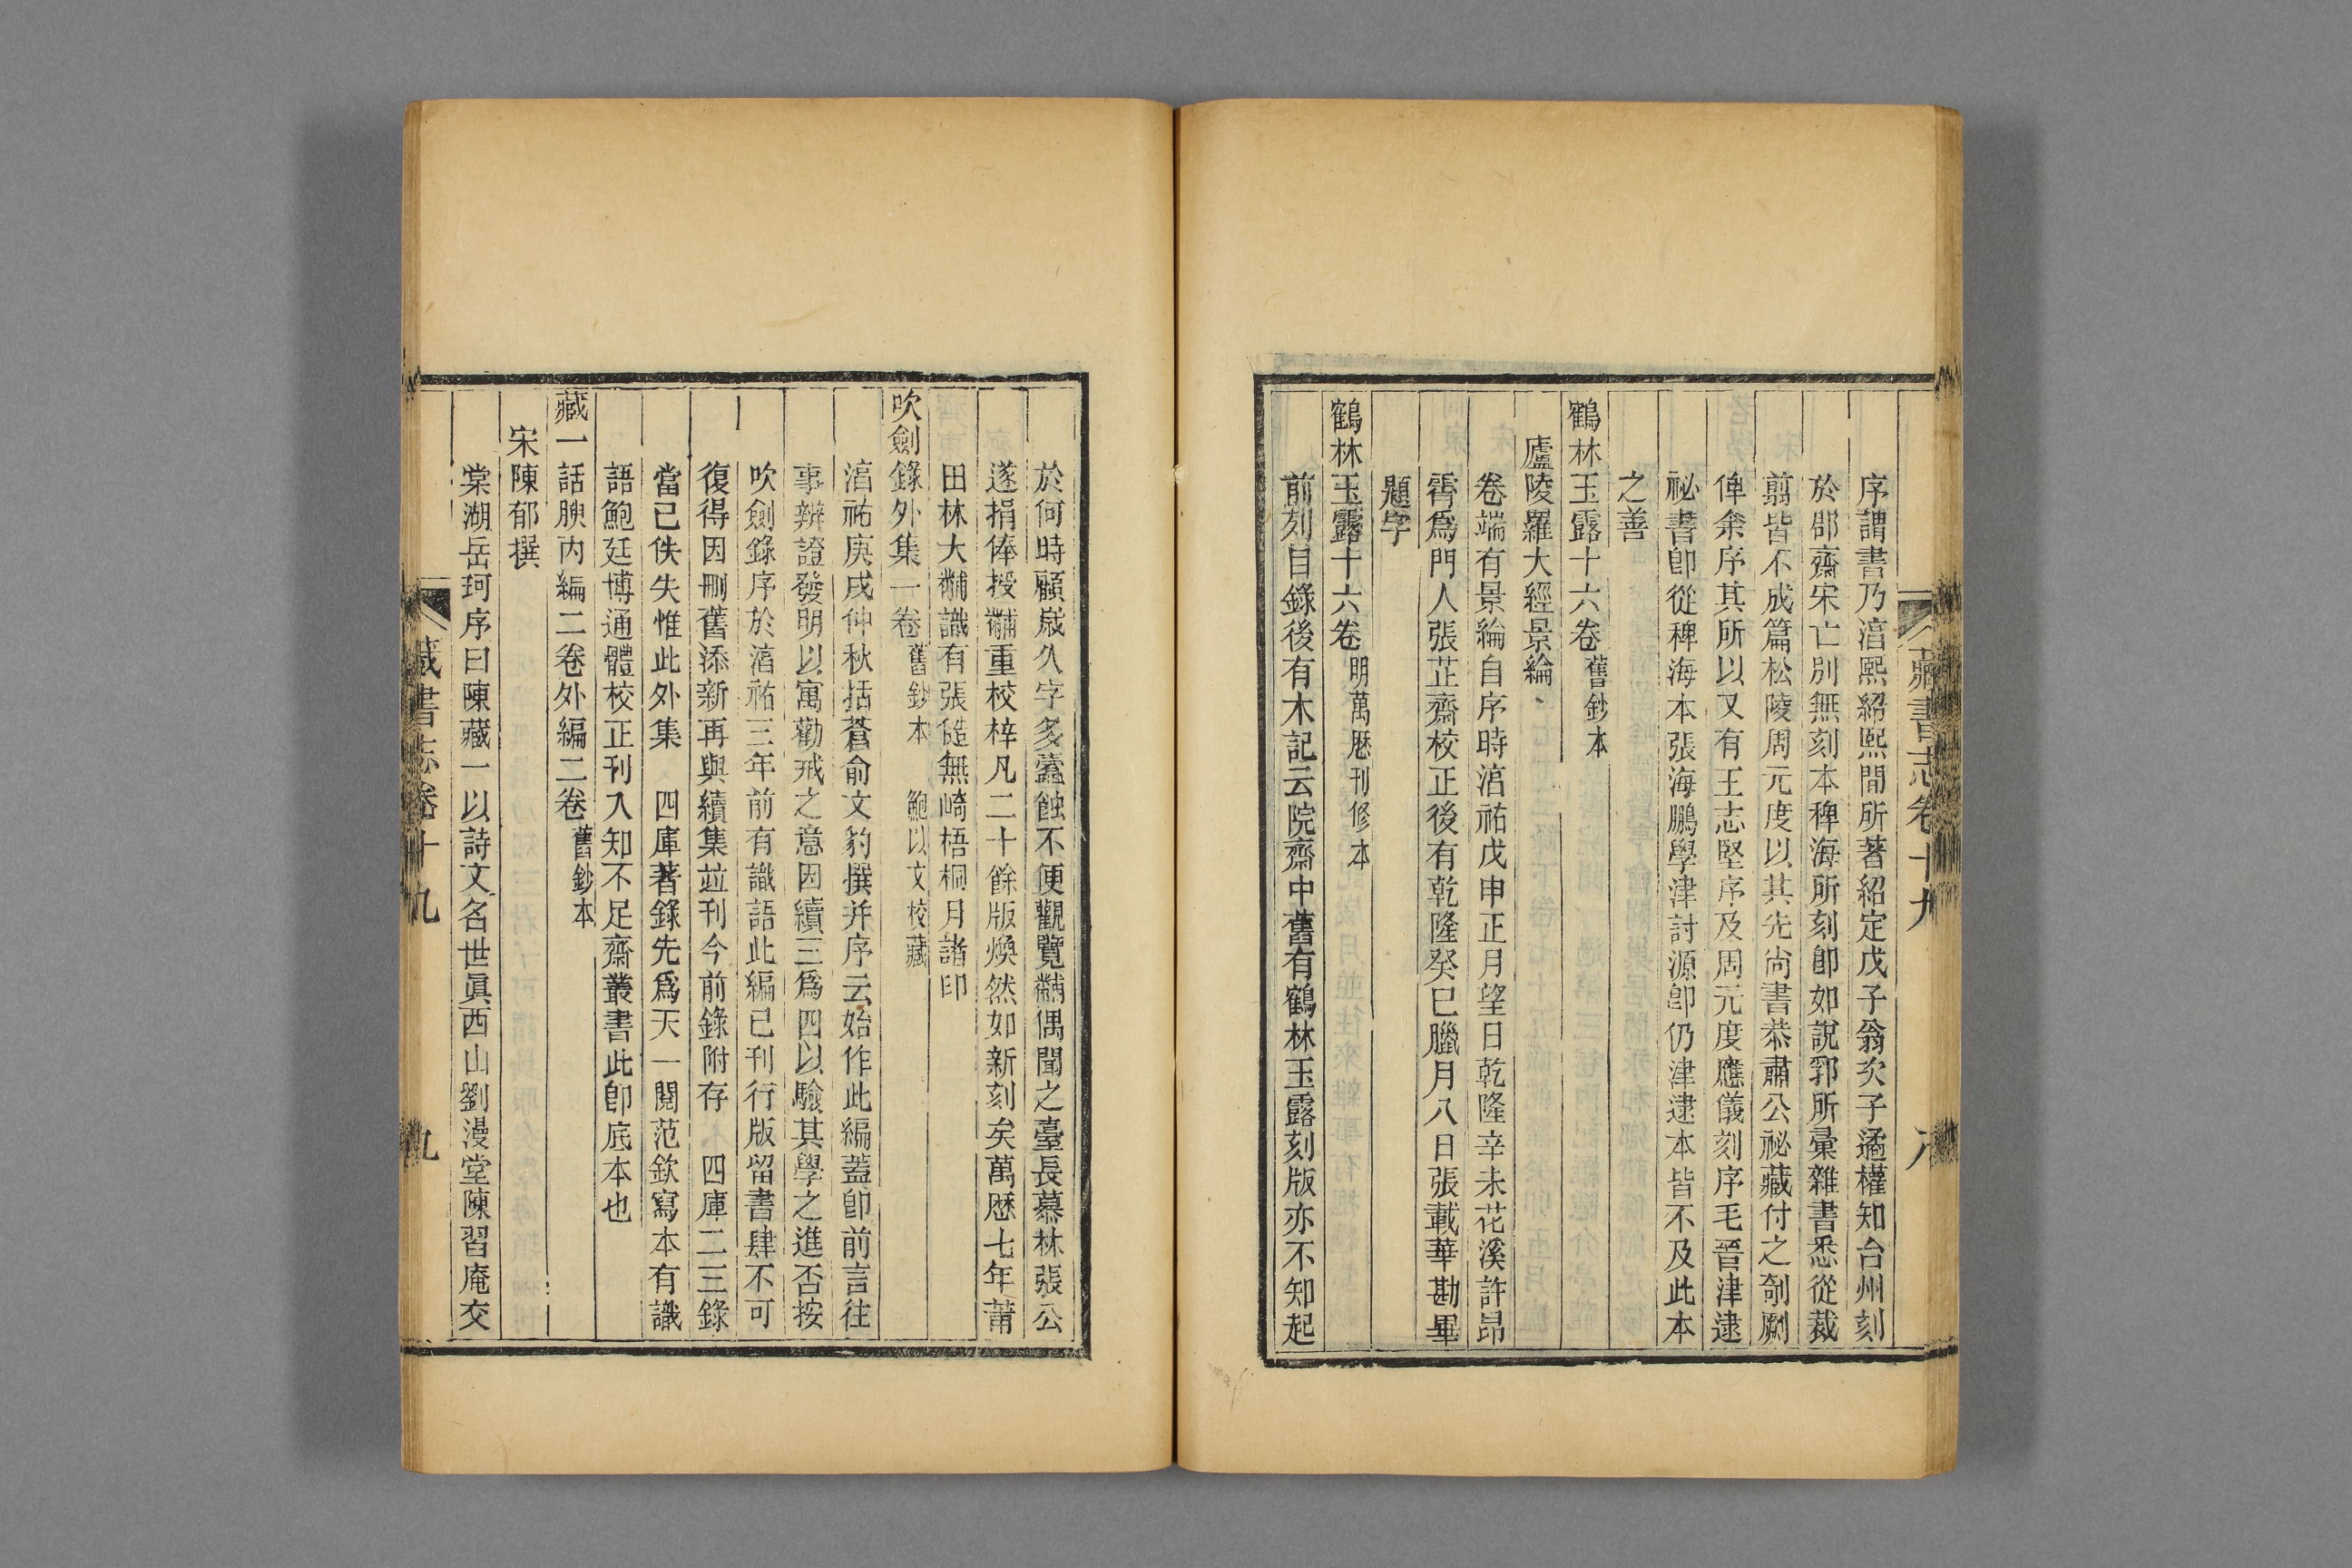 藏書志卷十九
八
序謂書乃淳熙紹熙間所著紹定戊子翁次子遹權知台州刻
於郡齋宋亡別無刻本稗海所刻卽如說郛所彙雜書悉從裁
翦皆不成篇松陵周元度以其先尚書恭肅公祕藏付之剞劂
俾余序其所以又有王志堅序及周元度應儀刻序毛晉津逮
祕書卽從稗海本張海鵬學津討源卽仍津逮本皆不及此本
之善
鶴林玉露十六卷舊鈔本
廬陵羅大經景綸
卷端有景綸自序時淳祐戊申正月望日乾隆辛未花溪許昂
霄爲門人張芷齋校正後有乾隆癸巳臘月八日張載華勘畢
題字
鶴林玉露十六卷明萬歷刊修本
前刻目錄後有木記云院齋中舊有鶴林玉露刻版亦不知起
於何時顧歲久字多蠹蝕不便觀覽黼偶聞之臺長慕林張公
遂捐俸授黼重校梓凡二十餘版煥然如新刻矣萬歷七年莆
田林大黼識有張𨓏無崎梧桐月諧印
吹劍錄外集一卷舊鈔本 鮑以文校藏
淳祐庚戌仲秋括蒼俞文豹撰并序云始作此編蓋卽前言往
事辨證發明以寓勸戒之意因續三爲四以驗其學之進否按
吹劍錄序於淳祐三年前有識語此編已刊行版留書肆不可
復得因刪舊添新再與續集竝刊今前錄附存 四庫二三錄
當已佚失惟此外集 四庫著錄先爲天一閣范欽寫本有識
語鮑廷博通體校正刊入知不足齋叢書此卽底本也
藏一話腴內編二卷外編二卷舊鈔本
宋陳郁撰
棠湖岳珂序曰陳藏一以詩文名世眞西山劉漫堂陳習庵交
藏書志卷十九
九